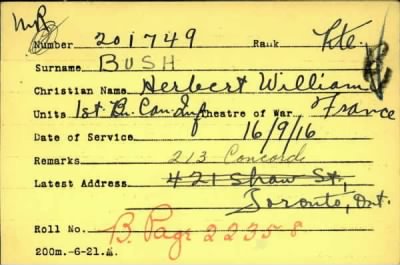 Number 201749 Rank Pte.
Surname BUSH
Christian Name Herbert William
Units 1st Bn. Can. Inf Theatre of War France
Date of Service 16/9/16
Remarks 213 Concord
Latest Address 421 Shaw St.,
Toronto, Ont.
Roll No. B. Page 22358
200m.-6-21.M.